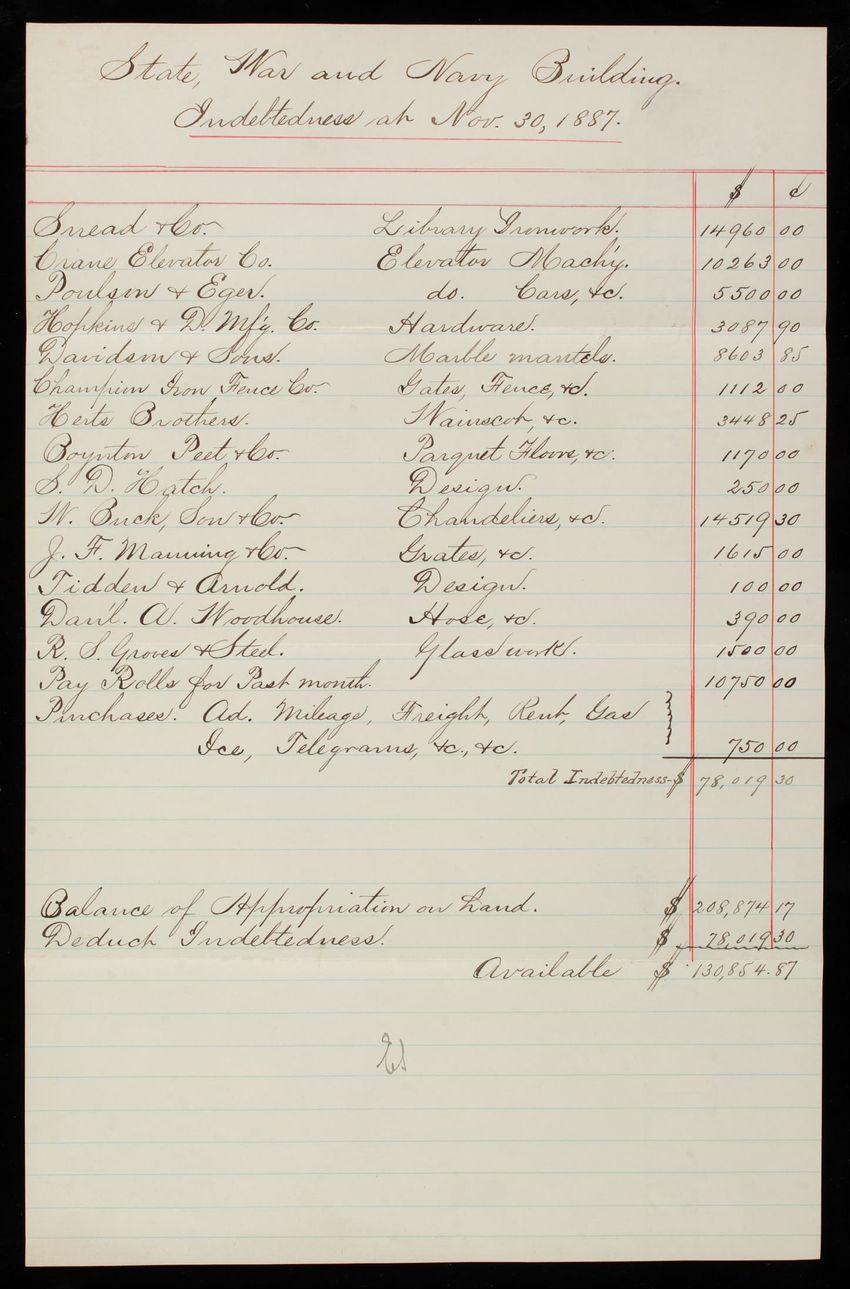 State, War and Navy Building.
Indebtedness at Nov. 30, 1887.
$ ¢
Snead & Co. Library Ironwork. 14960 00
Crane Elevator Co. Elevator Mach'y. 10263 00
Poulson & Eger. do. Cars, &c. 5500 00
Hopkins & D. Mf'g. Co. Hardware. 3087 90
Davidson & Sons. Marble mantels. 8603 85
Champion Iron Fence Co. Gates, Fence, &c. 1112 00
Herts Brothers. Wainscot, &c. 3448 25
Boynton Peet & Co. Parquet Floors, &c. 1170 00
S. D. Hatch. Design. 250 00
W. Buck, Son & Co. Chandeliers, &c. 14519 30
J. F. Manning & Co. Grates, &c. 1615 00
Tidden & Arnold. Design. 100 00
Dan'l. A. Woodhouse. Hose, &c. 390 00
R. S. Groves & Steel. Glasswork. 1500 00
Pay Rolls for Past month. 10750 00
Purchases. Ad. Mileage, Freight, Rent, Gas
Ice, Telegrams, &c., &c. 750 00
Total Indebtedness- $ 78,019 30
Balance of Appropriation on hand. $ 208,874 17
Deduct Indebtedness. $ 78,019 30
Available $ 130,854.87